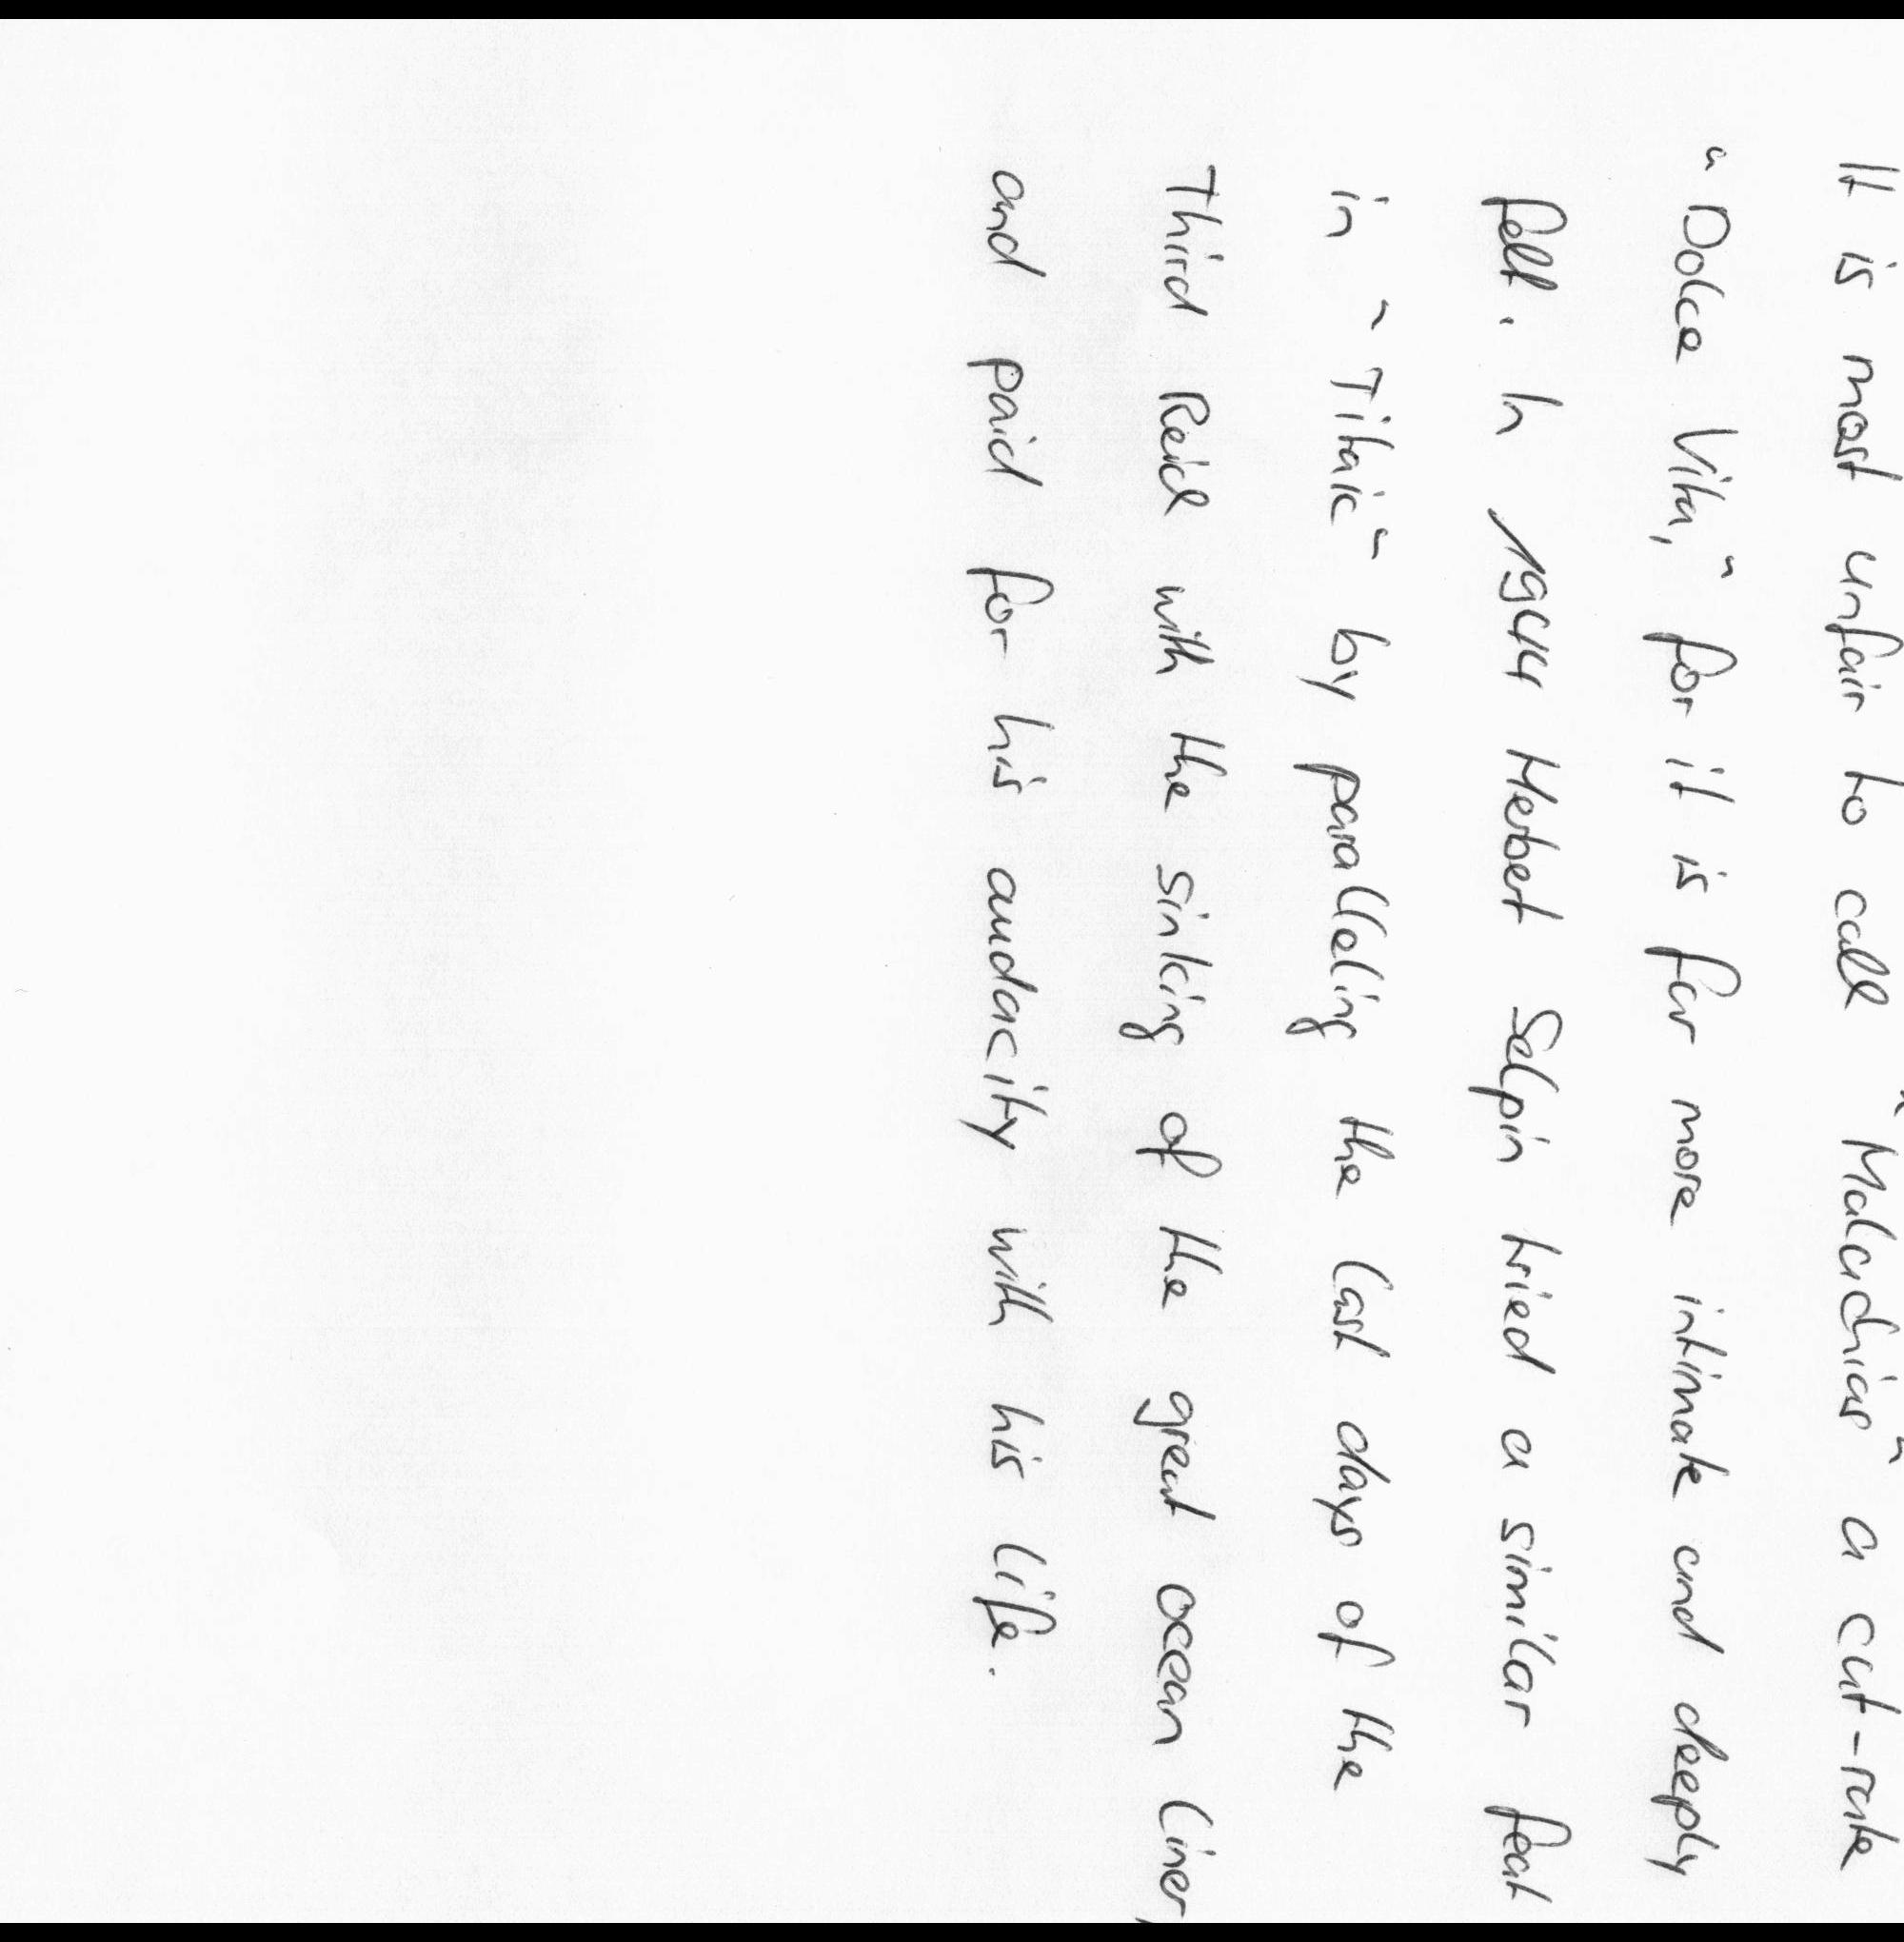 It is most unfair to call "Malachias" a cut-rate
"Dolce Vita," for it is far more intimate and deeply
felt. In 1944 Herbert Selpin tried a similar feat
in "Titaic" by paralleling the last days of the
Third Reich with the sinking of the great ocean liner,
and paid for his audacity with his life.